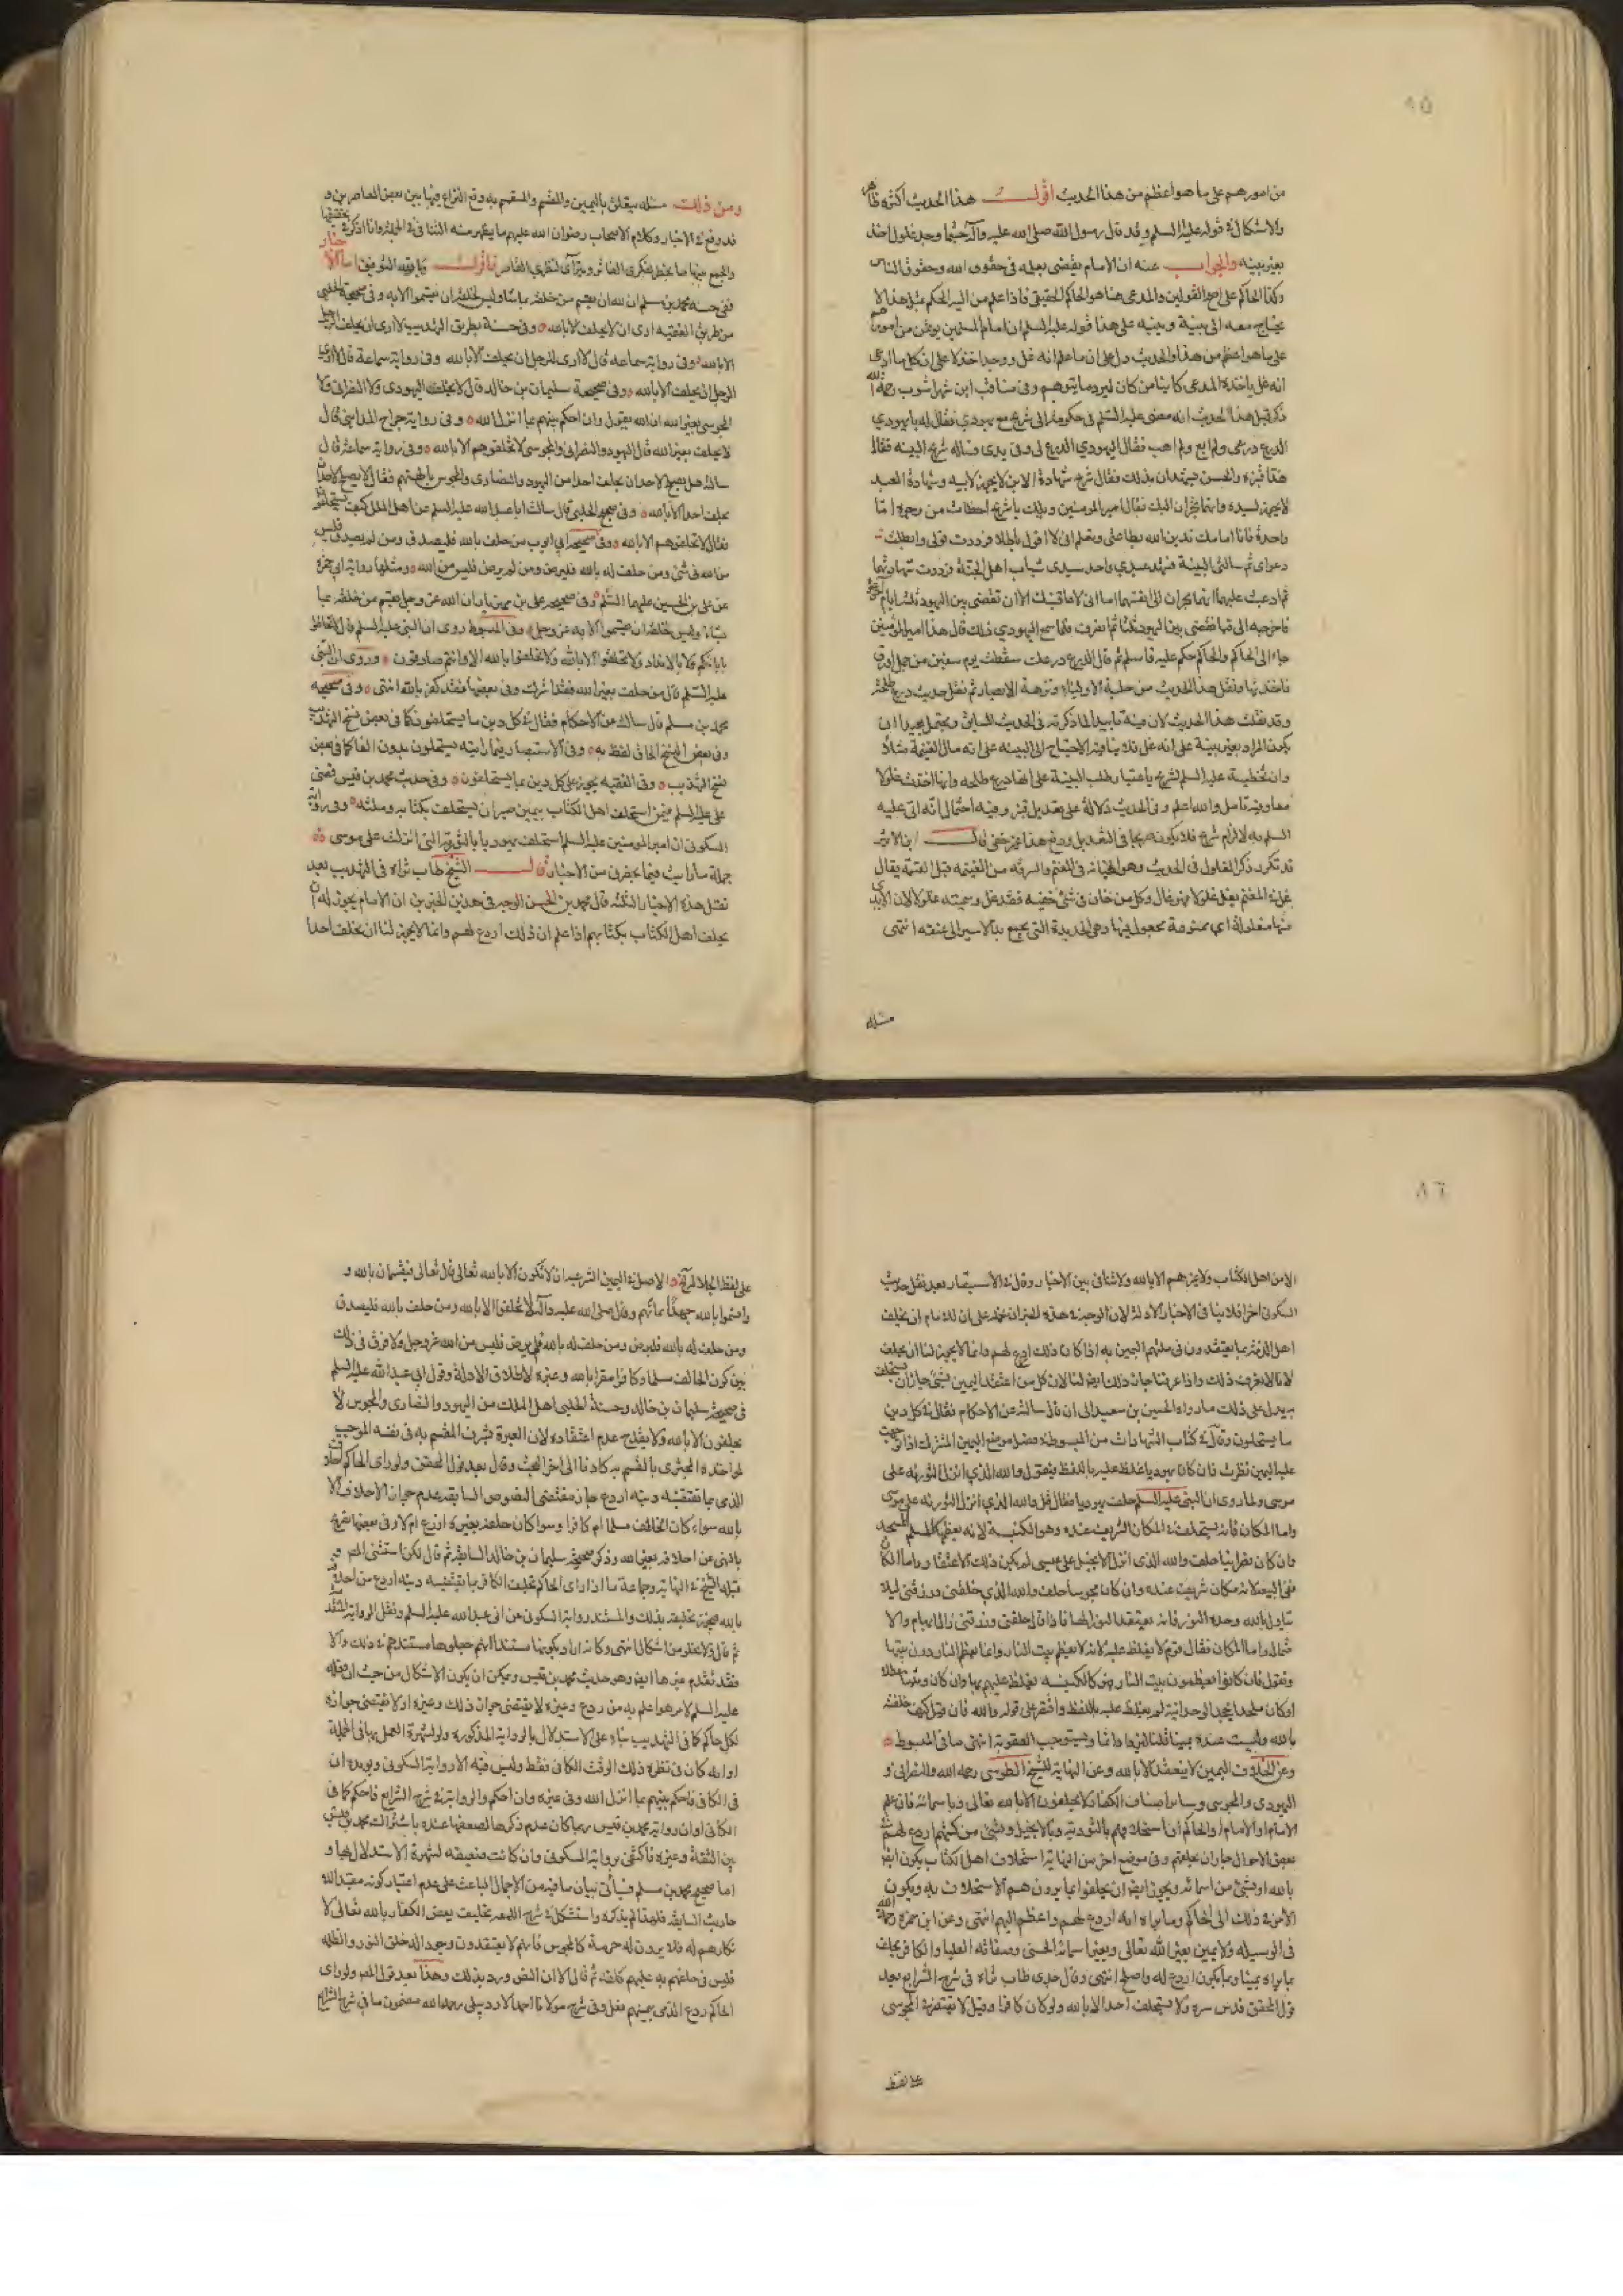 ٨٥
من امورهم على ما هو اعظم من هذا الحديث اقول هذا الحديث اكثره ظاهر
والاشكال في قوله عليه السلم وقد قال رسول الله صلى الله عليه وآله حيثما وجد غلول اخذ
بغير بينه والجواب عنه ان الامام يقضى بعلمه في حقوق الله وحقوق الناس
وكذا الحاكم على اصح القولين والمدعى هنا هو الحاكم الحقيقي فاذا علم من اليه الحكم مثل هذا لا
يحتاج معه الى بينة وينبه على هذا قوله عليه السلم ان امام المسلمين يؤتمن من امورهم
على ما هو اعظم من هذا والحديث دل على ان ما علم انه غل ووجد اخذ لا على ان كل ما ادعى
انه غل ياخذه المدعى كائنا من كان ليرد ما يتوهم وفي مناقب ابن شهراشوب رحمه الله
ذكر قبل هذا الحديث انه مضى عليه السلم في حكومة الى شريح مع يهودي فقال له يا يهودي
الدرع درعى ولم ابع ولم اهب فقال اليهودي الدرع لى وفي يدى فساله شريح البينه فقال
هذا قنبر والحسن يشهدان بذلك فقال شريح شهادة الابن لا يجوز لابيه وشهادة العبد
لا يجوز لسيده وانهما يجران اليك فقال امير المومنين ويلك يا شريح اخطات من وجوه اما
واحدة فانا امامك تدين الله بطاعتى وتعلم انى لا اقول باطلا فرددت قولى وابطلت
دعواى ثم سالتنى البينة فشهد عبدي واحد سيدى شباب اهل الجنة فرددت شهادتهما
ثم ادعيت عليهما انهما يجران الى انفسهما اما انى لا اعاقبك الا ان تقضى بين اليهود ثلثة ايام اخرجوه
فاخرجه الى قبا فقضى بين اليهود ثلثا ثم انصرف فلما سمع اليهودي ذلك قال هذا امير المؤمنين
جاء الى الحاكم والحاكم حكم عليه فاسلم ثم قال الدرع درعك سقطت يوم صفين من جمل اورق
فاخذتها ونقل هذا الحديث من حلية الاولياء ونزهة الابصار ثم نقل حديث درع طلحة
وقد نقلت هذا الحديث لان فيه تاييدا لما ذكرته في الحديث السابق ويحتمل بعيدا ان
يكون المراد بغير بينة على انه غل فلا ينافيه الاحتياج الى البينه على انه مال الغنيمة مثلا
وان تخطيئة عليه السلم لشريح باعتبار طلب البينة على انها درع طلحه وانها اخذت غلولا
معا وفيه تامل والله اعلم وفي الحديث دلالة على تعديل قنبر وفيه احتمال انه اتى عليه
السلم به لالزام شريح فلا يكون صريحا في التعديل ودفع هذا غير خفي قال ابن الاثير
قد تكرر ذكر الغلول في الحديث وهو الخيانه في المغنم والسرقه من الغنيمه قبل القسمة يقال
غل في المغنم يغل غلولا فهو غال وكل من خان في شئ خفيه فقد غل وسميته غلولا لان الايدى
فيها مغلولة اي ممنوعة مجعول فيها وهي الحديدة التى تجمع يد الاسير الى عنقه انتهى
مسئله
ومن ذلك مسئله يتعلق باليمين والقسم والمقسم به وقع النزاع فيها بين بعض المعاصرين و
قد وقع في الاخبار وكلام الاصحاب رضوان الله عليهم ما يظهر منه التنافى في الجملة وانا اذكر تحقيقها
والجمع بينها ما يخطر بفكرى الفاتر ويترآى لنظرى القاصر فاقول وبالله التوفيق اما الاخبار
ففي حسنه محمد بن مسلم ان لله ان يقسم من خلقه بما شاء وليس لخلقه ان يقسموا الا به وفي صحيحة الحلبي
من طريق الفقيه ارى ان لا يحلف الا بالله وفي حسنة بطريق التهذيب لا ارى ان يحلف الرجل
الا بالله وفي رواية سماعه قال لا ارى للرجل ان يحلف الا بالله وفي رواية سماعة قال لا ارى
الرجل ان يحلف الا بالله وفي صحيحة سليمان بن خالد قال لا يحلف اليهودى ولا النصرانى ولا
المجوسي بغير الله ان الله يقول وان احكم بينهم بما انزل الله وفي رواية جراح المدايني قال
لا يحلف بغير الله قال اليهود والنصرانى والمجوسى لا تحلفوهم الا بالله وفي رواية سماعة قال
سالته هل يصلح لاحد ان يحلف احدا من اليهود والنصارى والمجوس بالهتهم فقال لا يصلح لاحد ان
يحلف احدا الا بالله وفي صحيح الحلبي قال سالت ابا عبد الله عليه السلم عن اهل الملل كيف يستحلفون
فقال لا تحلفوهم الا بالله وفي صحيحة ابي ايوب من حلف بالله فليصدق ومن لم يصدق فليس
من الله في شئ ومن حلف له بالله فليرض ومن لم يرض فليس من الله ومثلها رواية ابي حمزة
عن على بن الحسين عليهما السلم وفي صحيحه على بن مهزيار ان الله عز وجل يقسم من خلقه بما
شاء وليس لخلقه ان يقسموا الا به عز وجل وفي المبسوط روى ان النبي عليه السلم قال لا تحلفوا
بابائكم ولا بالانداد ولا تحلفوا الا بالله ولا تحلفوا بالله الا وانتم صادقون وروى ان النبي
عليه السلم قال من حلف بغير الله فقد اشرك وفي بعضها فقد كفر بالله انتهى وفي صحيحة
محمد بن مسلم قال سالته عن الاحكام فقال في كل دين ما يستحلفون كما في بعض نسخ التهذيب
وفي بعض النسخ الحاق لفظ به وفي الاستبصار فيما رايته يستحلون بدون الفا كما في بعض
نسخ التهذيب وفي الفقيه يجوز على كل دين بما يستحلفون وفي حديث محمد بن قيس قضى
على عليه السلم فيمن استحلف اهل الكتاب بيمين صبر ان يستحلف بكتابه وملته وفي رواية
السكونى ان امير المومنين عليه السلم استحلف يهوديا بالتورية التى انزلت على موسى
جملة ما رايت فيما يحضرنى من الاخبار قال الشيخ طاب ثراه في التهذيب بعد
نقل هذه الاخبار الثلثه قال محمد بن الحسن الوجه في هذين الخبرين ان الامام يجوز له ان
يحلف اهل الكتاب بكتابهم اذا علم ان ذلك اردع لهم وانما لا يجوز لنا ان نحلف احدا
٨٦
الا من اهل الكتاب ولا غيرهم الا بالله ولا تنافي بين الاخبار وقال في الاستبصار بعد نقل حديث
السكونى اخرا فلا ينافى الاخبار الاولة لان الوجه في هذه الخبر ان نحمله على ان للامام ان يحلف
اهل الذمة بما يعتقدون في ملتهم اليمين به اذا كان ذلك اردع لهم وانما لا يجوز لنا ان نحلف
لانا لا نعرف ذلك واذا عرفنا جاز ذلك ايضا لنا لان كل من اعتقد اليمين بشئ جاز ان يستحلف
يدل على ذلك ما رواه الحسين بن سعيد الى ان قال سالته عن الاحكام فقال في كل دين
ما يستحلون وقال في كتاب الشهادات من المبسوط فصل موضع اليمين المنزلت اذا توجهت
عليه اليمين نظرت فان كان يهوديا غلظ عليه باللفظ فيقول والله الذي انزل التورية على
موسى ولما روى ان النبى عليه السلم حلف يهوديا فقال قل والله الذي انزل التورية على موسى
واما المكان فانه يستحلف في المكان الشريف عنده وهو الكنيسة لانه يعظمها كالمسلم المسجد
فان كان نصرانيا حلف والله الذى انزل الانجيل على عيسى لم يكن ذلك الاعتقاد واما المكان
ففى البيعة لانه مكان شريف عنده وان كان مجوسيا حلف والله الذي خلقنى ورزقنى ليلا
يتاول بالله وحده النور فانه يعتقد النور الها فاذا قال خلقنى ورزقنى زال الابهام والا
ضلال واما المكان فقال قوم لا يغلظ عليه لانه لا يعظم بيت النار وانما يعظم النار دون بيتها
ونقول فان كانوا يعظمون بيت النار فهو كالكنيسه يغلظ عليهم بها وان كان وثنيا معطلا
او كان ملحدا يجحد الوحدانية لم يغلظ عليه باللفظ واقتصر على قوله والله فان قيل كيف حلفته
بالله وليست عنده يمينا قلنا ليزداد اثما ويستوجب العقوبة انتهى ما في المبسوط
وعن الخلاف اليمين لا ينعقد الا بالله وعن النهاية للشيخ الطوسى رحمه الله والنصرانى و
اليهودى والمجوسى وساير اصناف الكفار لا يحلفون الا بالله تعالى وباسمائه فان علم
الامام او الحاكم ان استحلافهم بالتورية وبالانجيل وبشئ من كتبهم اردع لهم في
بعض الاحوال جاز ان يحلفهم وفي موضع اخر من النهاية استحلاف اهل الكتاب يكون ايضا
بالله او بشئ من اسمائه ويجوز ايضا ان يحلفوا بما يرون هم الاستحلاف به ويكون
الامر في ذلك الى الحاكم وما يراه انه اردع لهم واعظم اليهم انتهى وعن ابن حمزة رحمه الله
في الوسيله ولا يمين بغير الله تعالى وبغير اسمائه الحسنى وصفاته العليا والكافر يحلف
بما يراه يمينا وبما يكون اردع له واصلح انتهى وقال جدى طاب ثراه في شرح الشرايع بعد
قول المحقق قدس سره ولا يستحلف احد الا بالله ولو كان كافرا وقيل لا يقتصر في المجوسى
على لفظ
على لفظ الجلالة الاصل في اليمين الشرعيه ان لا تكون الا بالله تعالى قال تعالى فيقسمان بالله و
واقسموا بالله جهد ايمانهم وقال صلى الله عليه وآله لا تحلفوا الا بالله ومن حلف بالله فليصدق
ومن حلف له بالله فليرض ومن حلف له بالله فلم يرض فليس من الله عز وجل ولا فرق في ذلك
بين كون الحالف مسلما وكافرا مقرا بالله وغيره لاطلاق الادلة وقول ابي عبد الله عليه السلم
في صحيحة سليمان بن خالد وحسنة الحلبي اهل الملل من اليهود والنصارى والمجوس لا
يحلفون الا بالله ولا يقدح عدم اعتقاده لان العبرة بشرف المقسم به في نفسه الموجب
لمواخذة المجترى بالقسم به كاذبا الى اخر البحث وقال بعد قول المحقق ولو راى الحاكم احلاف
الذمى بما يقتضيه دينه اردع جاز مقتضى النصوص السابقه عدم جواز الاحلاف الا
بالله سواء كان الحالف مسلما ام كافرا وسوا كان حلفه بغيره اردع ام لا وفي بعضها تصريح
بالنهى عن احلافه بغير الله وذكر صحيحة سليمان بن خالد السابقة ثم قال لكن استثنى المصـ و
قبله الشيخ في النهاية وجماعة ما اذا راى الحاكم تحليف الكافر بما يقتضيه دينه اردع من احلافه
بالله فيجوز تحليفه بذلك والمستند رواية السكونى عن ابى عبد الله عليه السلم ونقل الرواية المتقدمة
ثم قال ولا تخلو من اشكال انتهى وكانه اراد بكونها مستندا انهم جعلوها مستندهم في ذلك والا
فقد تقدم غيرها ايضا وهو حديث محمد بن قيس ويمكن ان يكون الاشكال من حيث ان فعله
عليه السلم لامر هو اعلم به من ردع وغيره لا يقتضى جواز ذلك وغيره او لا يقتضى جوازه
لكل حاكم كما في التهذيب بناء على الاستدلال بالرواية المذكورة ولو لشهرة العمل بها في الجملة
او انه كان في نظره ذلك الوقت الكافى فقط وليس فيه الا رواية السكونى ويويده ان
في الكافى فاحكم بينهم بما انزل الله وفي غيره وان احكم والرواية في شرح الشرايع فاحكم كما في
الكافى او ان رواية محمد بن قيس ربما كان عدم ذكرها لضعفها عنده باشتراك محمد بن قيس
بين الثقة وغيره فاكتفى برواية السكونى وان كانت ضعيفه لشهرة الاستدلال بها و
اما صحيح محمد بن مسلم فياتى بيان ما فيه من الاجمال الباعث على عدم اعتبار كونه مقيدا للا
حاديث السابقة فلهذا لم يذكره واستشكل في شرح اللمعه تحليف بعض الكفار بالله تعالى لا
نكارهم له فلا يرون له حرمة كالمجوس فانهم لا يعتقدون وجود الله خلق النور والظلمه
فليس في حلفهم به عليهم كلفة ثم قال الا ان النص ورد بذلك وهذا بعد قول المصـ ولو راى
الحاكم ردع الذمى بيمينهم فعل وفي شرح مولانا احمد الاردبيلى رحمه الله مضمون ما في شرح الشرايع